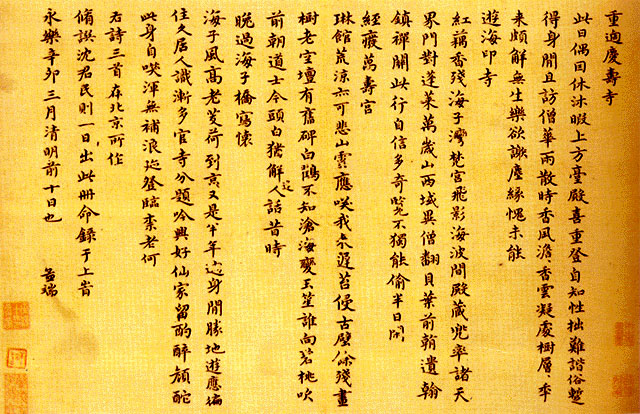 重過慶壽寺
此日偶因休沐暇上方臺殿喜重登自知性拙難諧俗暫
得身閒且訪僧華雨散時香風澹香雲凝處樹層々年
來頗解無生樂欲謝塵緣愧未能
遊海印寺
紅藕香殘海子灣梵宮飛影海波間殿藏兜率諸天
界門對蓬萊萬歲山西域異僧翻貝葉前朝遺翰
鎮禪關此行自信多奇覽不獨能偷半日閒
經廢萬壽宮
琳館荒涼亦可悲山靈應笑我來遲苔侵古壁餘殘畫
樹老空壇有舊碑白鶴不知滄海變玉笙誰向碧桃吹
前朝道士今頭白猶解逢人話昔時
晚過海子橋寫懷
海子風高老芰荷到京又是半年過身閒勝地遊應徧
住久居人識漸多官寺分題吟興好仙家留酌醉顏酡
此身自笑渾無補浪跡登臨奈老何
右詩三首在北京所作
脩撰沈君民則一日出此冊命錄于上旹
永樂辛卯三月清明前十日也 孟端